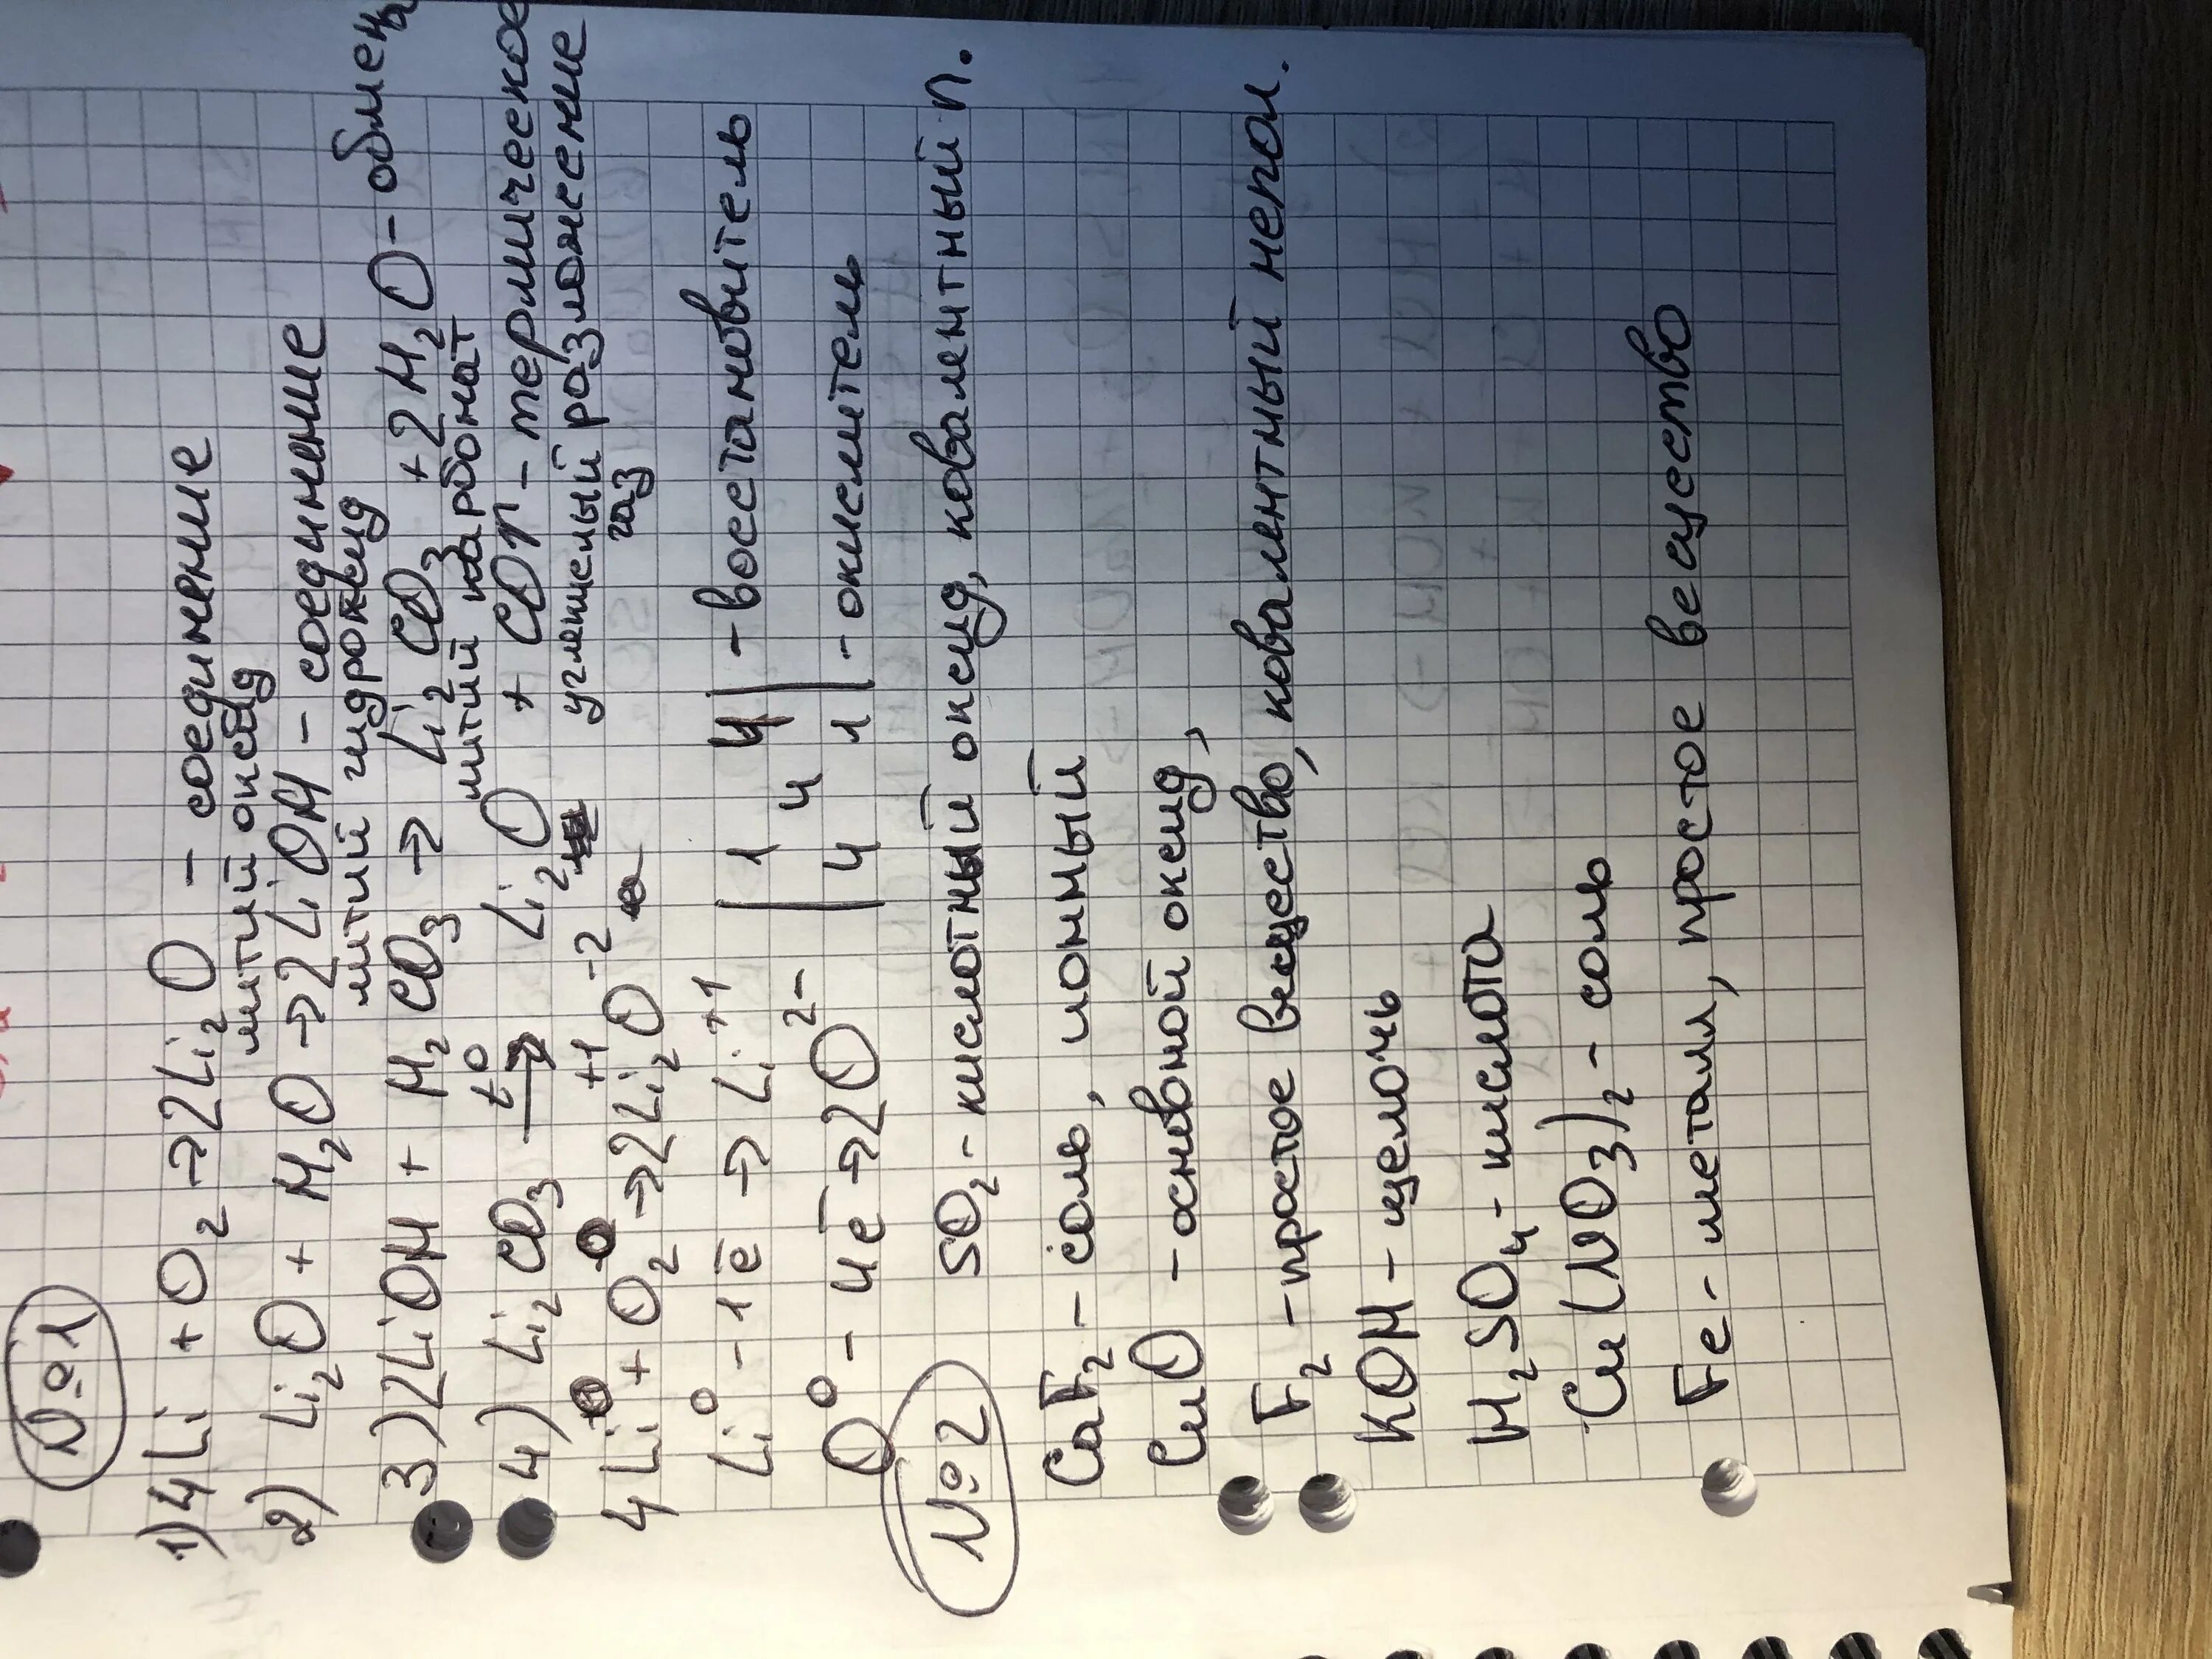 №1
1) 4Li + O₂ → 2Li₂O — соединение
литий оксид
2) Li₂O + H₂O → 2LiOH — соединение
литий гидроксид
3) 2LiOH + H₂CO₃ → Li₂CO₃ + 2H₂O - обмен
литий карбонат
4) Li₂CO₃ t° → Li₂O + CO₂ - термическое
углекислый разложение
газ
4Li + O₂ → 2Li₂⁺¹O⁻²
Li⁰ - 1ē → Li⁺¹ | 1 4 | - восстановитель
O⁰ - 4ē → 2O²⁻ | 4 4 1 | - окислитель
№2 SO₂ - кислотный оксид, ковалентный п.
CaF₂ - соль, ионный
CuO - основной оксид,
F₂ - простое вещество, ковалентный непол.
KOH - щелочь
H₂SO₄ - кислота
Cu(NO₃)₂ - соль
Fe - металл, простое вещество